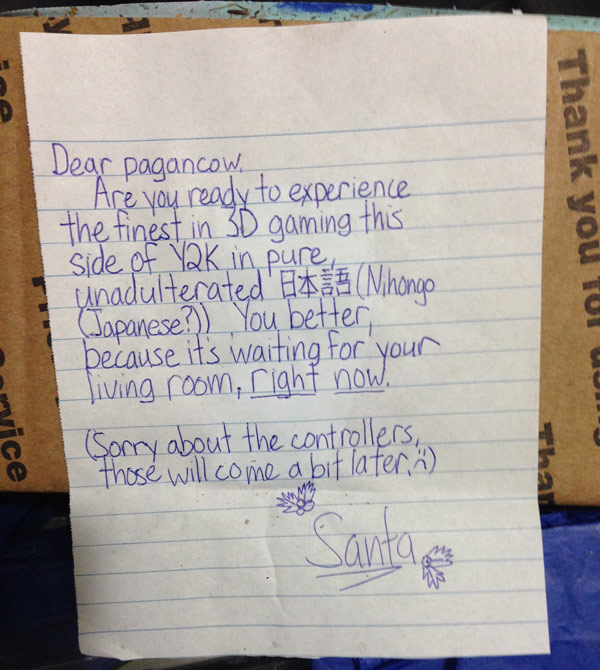 Dear pagancow,
Are you ready to experience
the finest in 3D gaming this
side of Y2K in pure,
unadulterated 日本語 (Nihongo
(Japanese?)) . You better,
because it's waiting for your
living room, right now.
(Sorry about the controllers,
those will come a bit later. :()
Santa
Thank you for using
Service
Than
ice